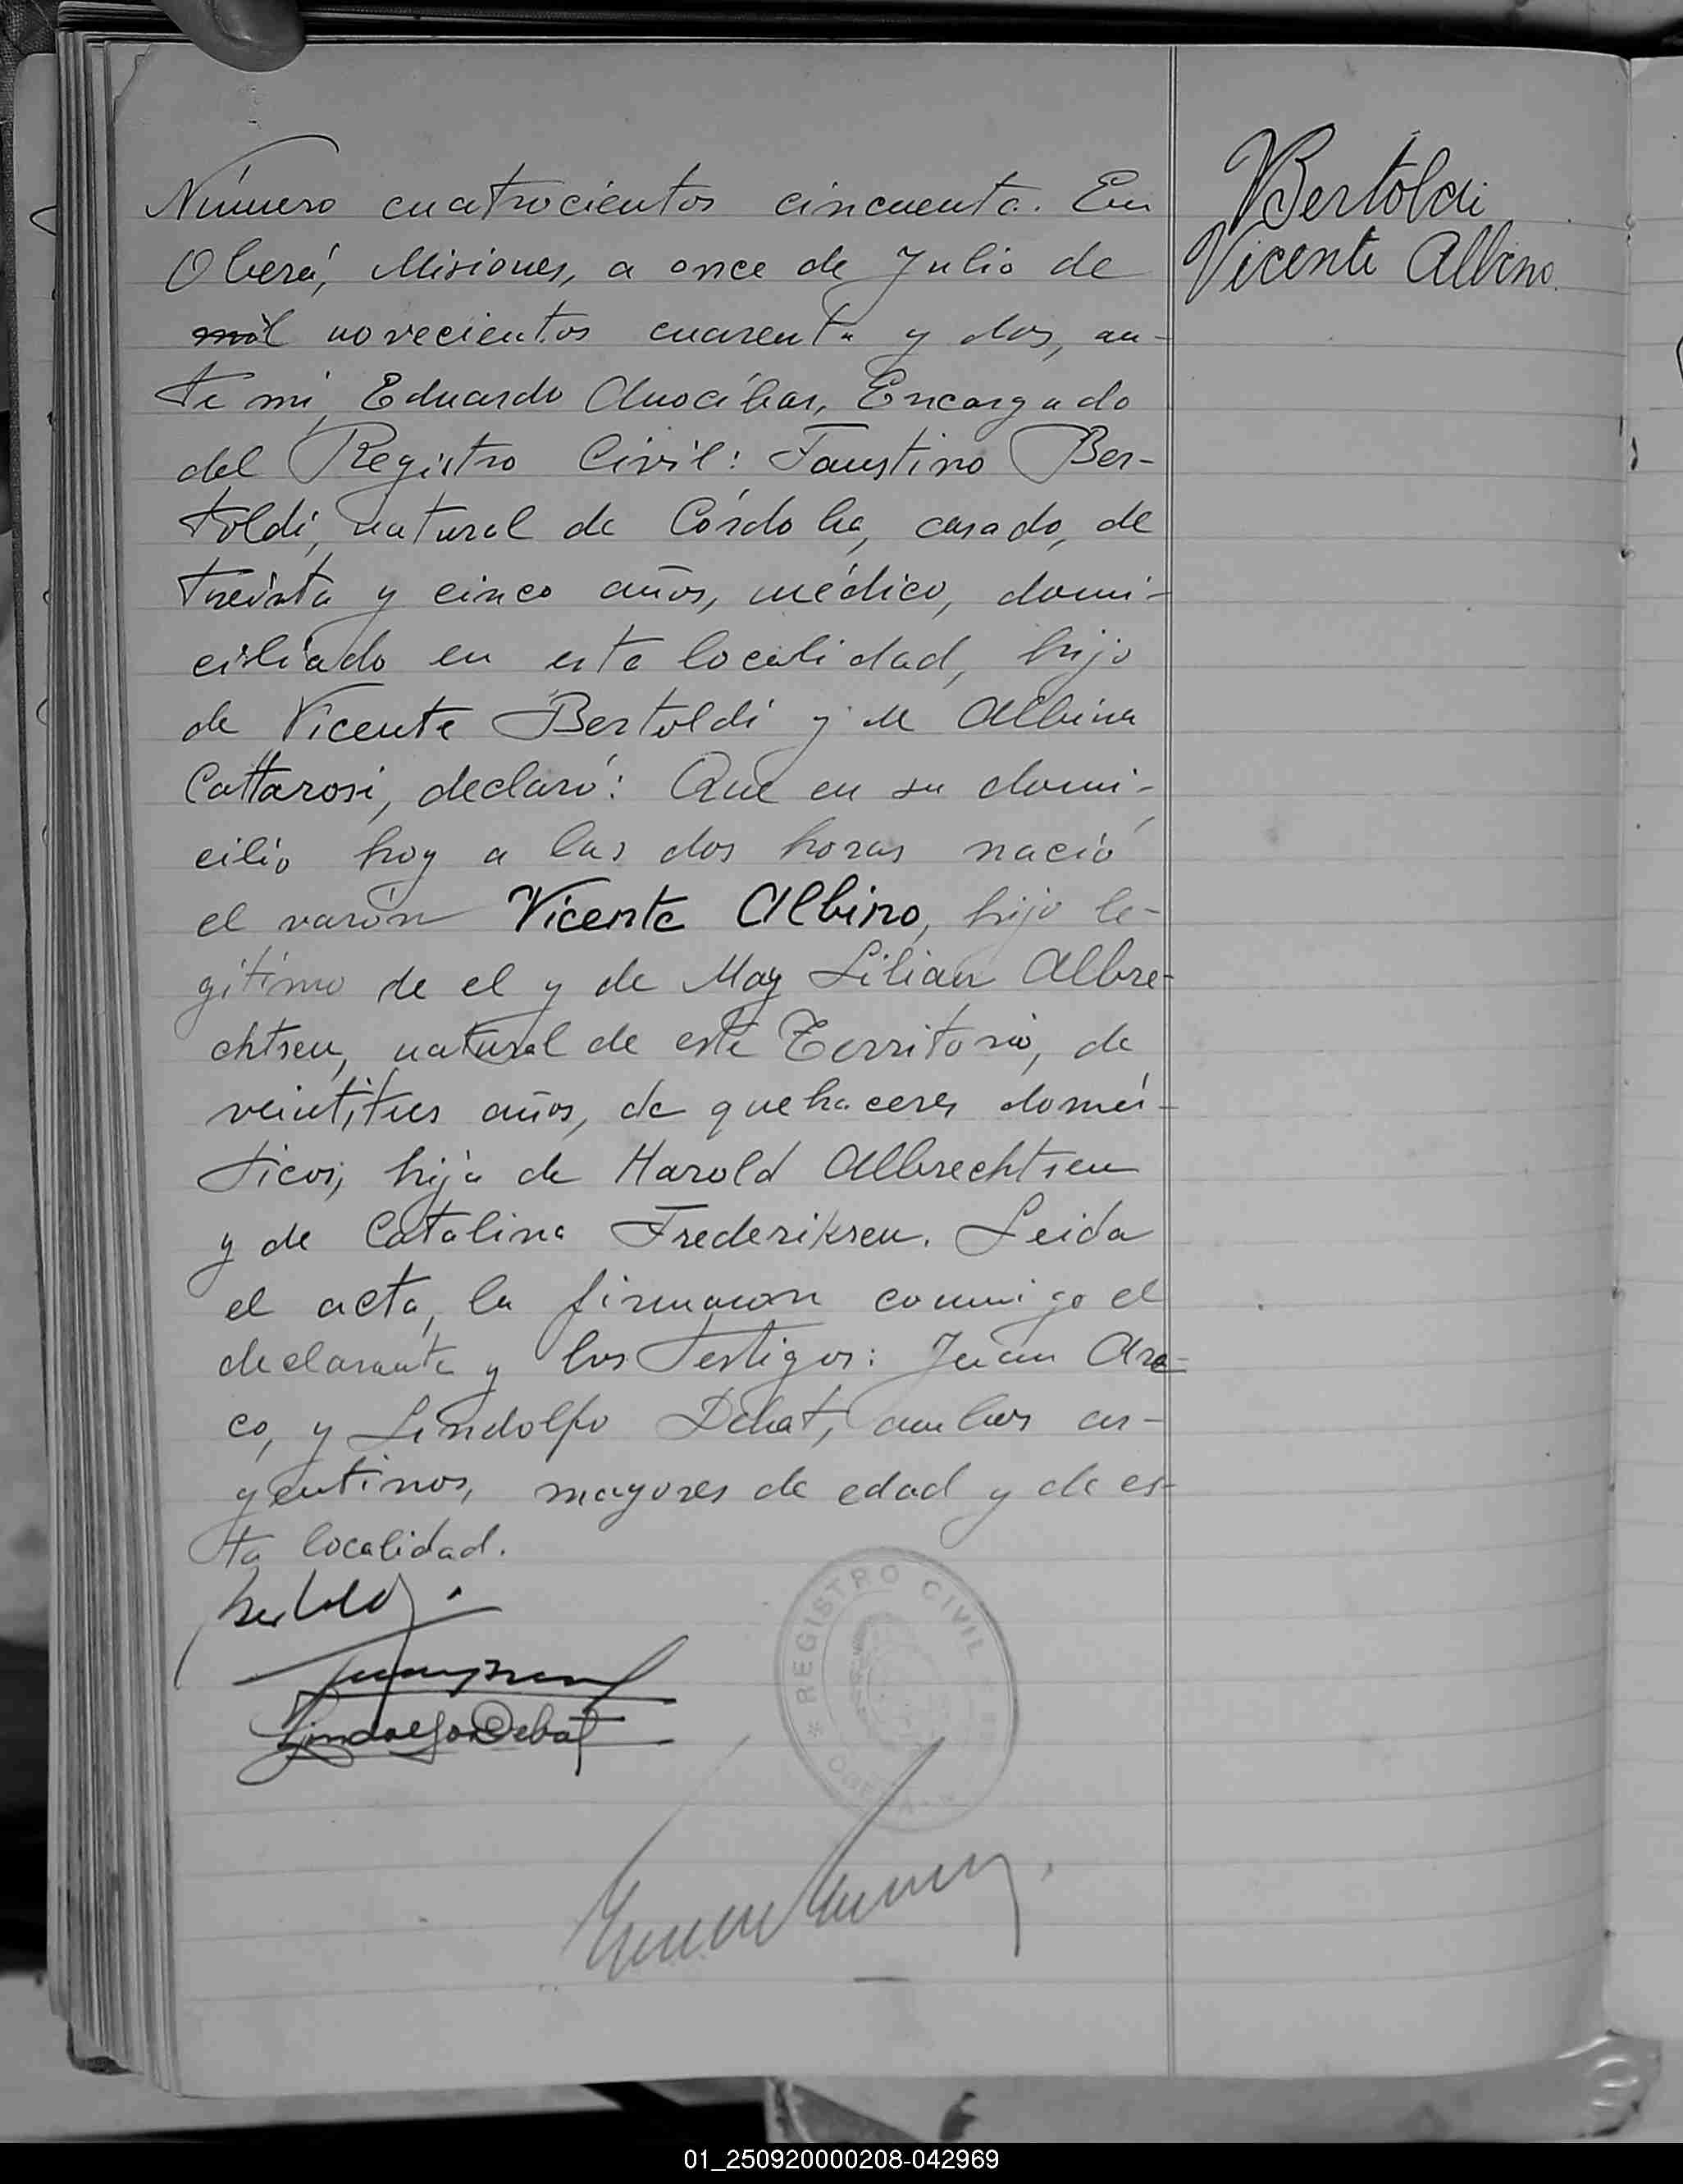 Número cuatrocientos cincuenta. En
Oberá, Misiones, a once de Julio de
mil novecientos cuarenta y dos, an-
te mi, Eduardo Anocíbar, Encargado
del Registro Civil: Faustino Ber-
toldi, natural de Córdoba, casado, de
treinta y cinco años, médico, domi-
ciliado en esta localidad, hijo
de Vicente Bertoldi y de Albina
Cattarosi, declaró: Que en su domi-
cilio hoy a las dos horas nació
el varón Vicente Albino, hijo le-
gítimo de el y de May Lilian Albre-
chtsen, natural de este Territorio, de
veintitres años, de quehaceres domés-
ticos, hija de Harold Albrechtsen
y de Catalina Frederiksen. Leida
el acta, la firmaron conmigo el
declarante y los testigos: Juan Are-
co, y Lindolfo Debat, ambos ar-
gentinos, mayores de edad y de es-
ta localidad.
Bertoldi
Lindolfo Debat
REGISTRO CIVIL
Bertoldi
Vicente Albino.
01_250920000208-042969